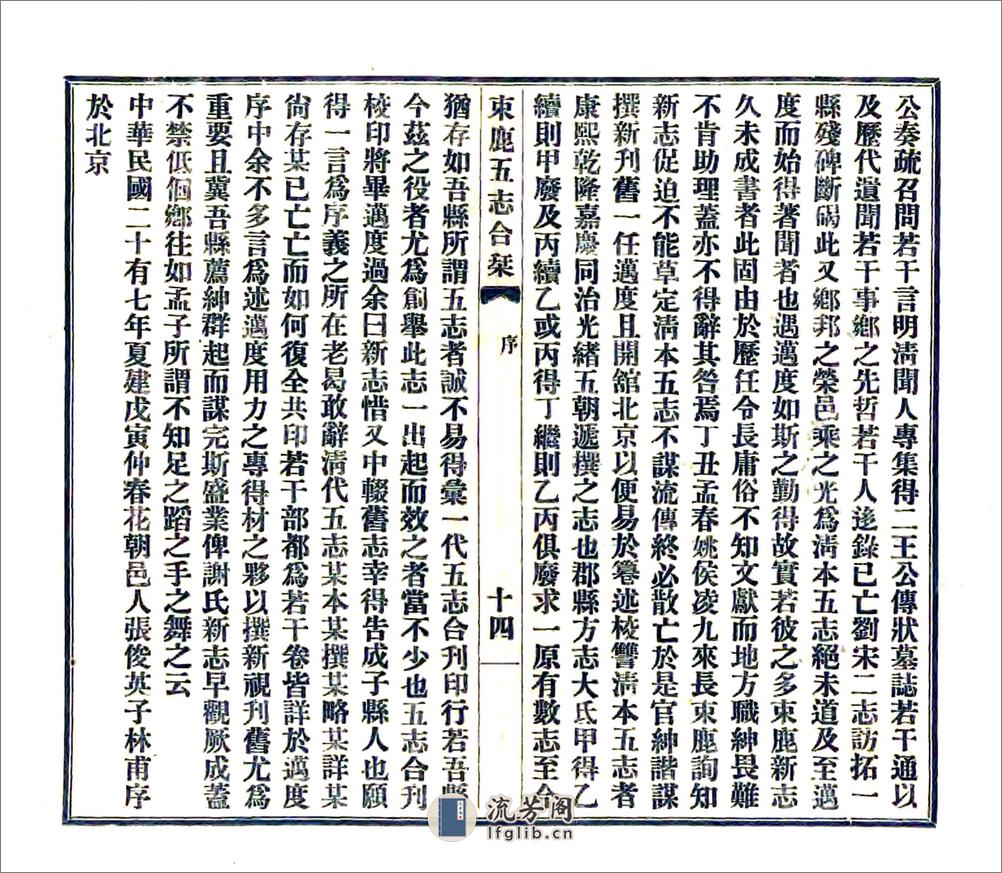 公奏疏召問若干言明淸聞人專集得二王公傳狀墓誌若干通以
及歷代遺聞若干事鄕之先哲若干人迻錄已亡劉宋二志訪拓一
縣殘碑斷碣此又鄕邦之榮邑乘之光爲淸本五志絕未道及至邁
度而始得著聞者也遇邁度如斯之勤得故實若彼之多束鹿新志
久未成書者此固由於歷任令長庸俗不知文獻而地方職紳畏難
不肯助理蓋亦不得辭其咎焉丁丑孟春姚侯凌九來長束鹿詢知
新志促迫不能草定淸本五志不謀流傳終必散亡於是官紳諧謀
撰新刊舊一任邁度且開舘北京以便易於纂述校讐淸本五志者
康熙乾隆嘉慶同治光緖五朝遞撰之志也郡縣方志大氐甲得乙
續則甲廢及丙續乙或丙得丁繼則乙丙俱廢求一原有數志至今
束鹿五志合栞
序
十四
猶存如吾縣所謂五志者誠不易得彙一代五志合刊印行若吾縣
今茲之役者尤爲創舉此志一出起而效之者當不少也五志合刊
校印將畢邁度過余曰新志惜又中輟舊志幸得告成子縣人也願
得一言爲序義之所在老曷敢辭淸代五志某本某撰某略某詳某
尙存某已亡亡而如何復全共印若干部都爲若干卷皆詳於邁度
序中余不多言爲述邁度用力之專得材之夥以撰新視刊舊尤爲
重要且冀吾縣薦紳群起而謀完斯盛業俾謝氏新志早觀厥成蓋
不禁低個鄕往如孟子所謂不知足之蹈之手之舞之云
中華民國二十有七年夏建戊寅仲春花朝邑人張俊英子林甫序
於北京
流芳阁
lfglib.cn